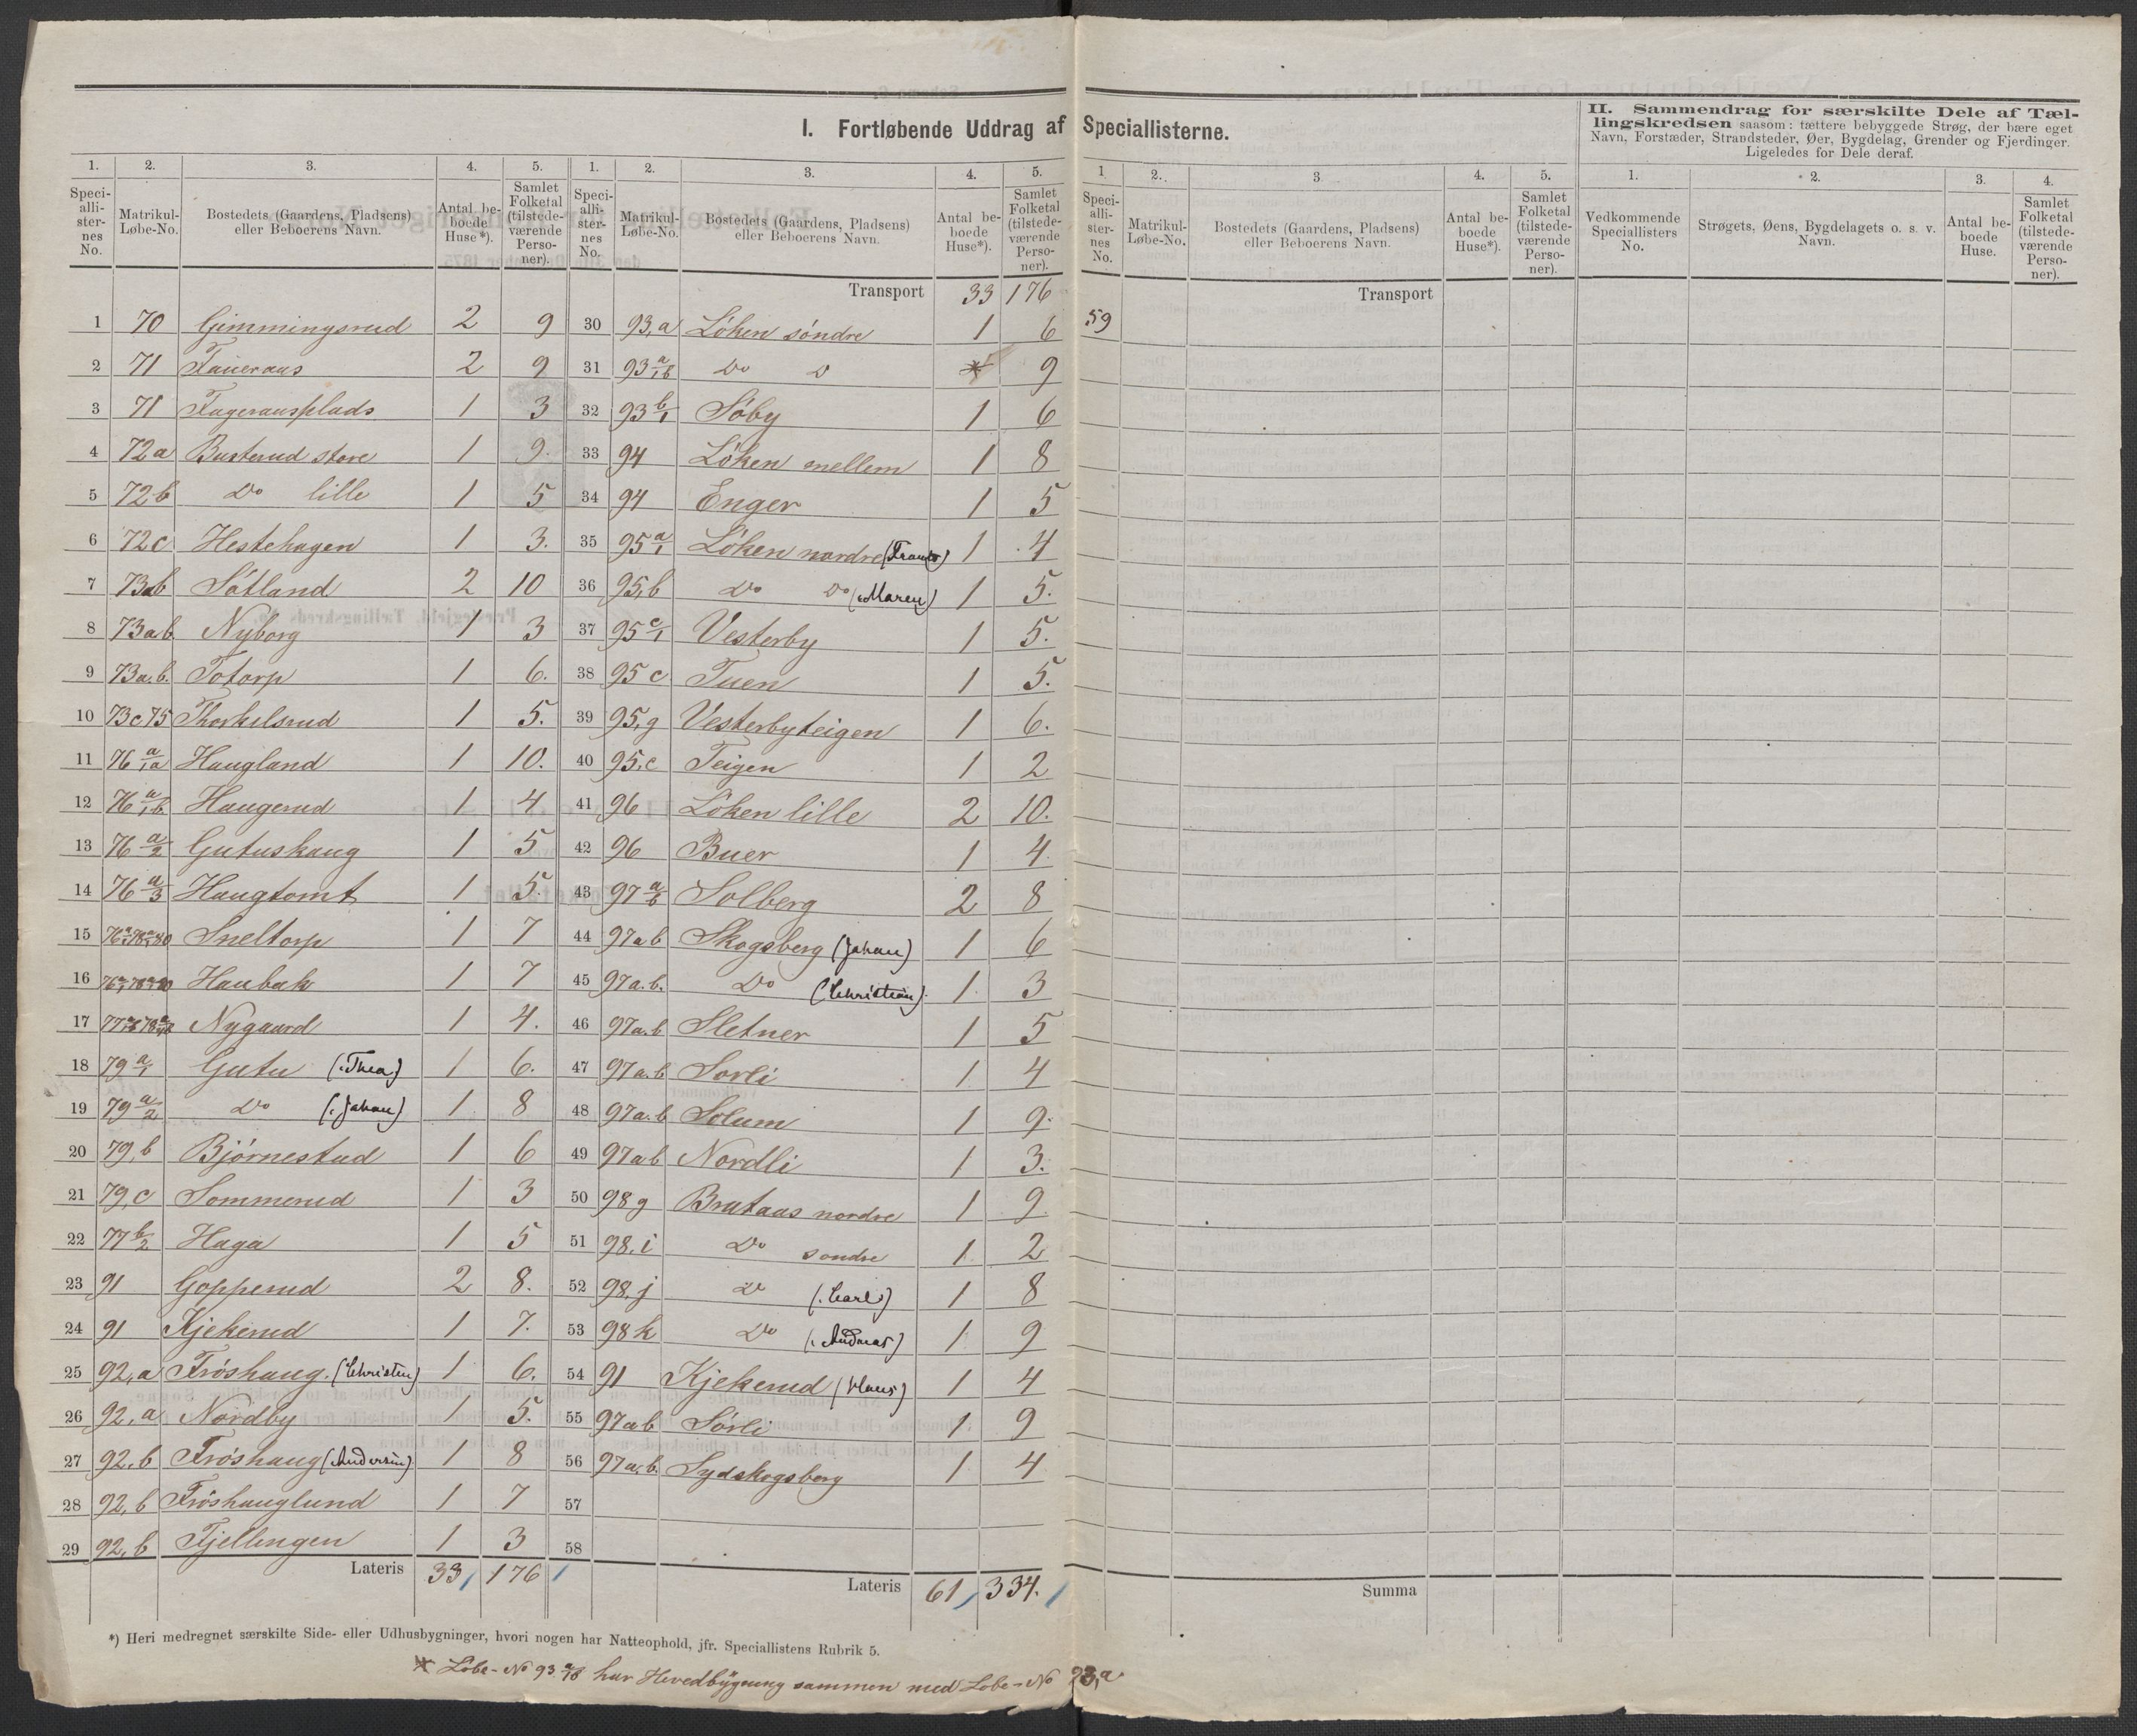 I. Fortløbende Uddrag af Speciallisterne.
II. Sammendrag for særskilte Dele af Tællingskredsen saasom: tættere bebyggede Strøg, der bære eget
Navn, Forstæder, Strandsteder, Øer, Bygdelag, Grender og Fjerdinger.
Ligeledes for Dele deraf.
1. 2. 3. 4. 5.
Speciallisternes No. Matrikul-Løbe-No. Bostedets (Gaardens, Pladsens) eller Beboerens Navn. Antal beboede Huse*). Samlet Folketal (tilstedeværende Personer).
1 70 Gimmingsrud 2 9
2 71 Faueraas 2 9
3 71 Fageraasplads 1 3
4 72a Busterud store 1 9.
5 72b Do lille 1 5
6 72c Hestehagen 1 3.
7 73ab Sötland 2 10
8 73a b Nyborg 1 3
9 73a.b. Totorp 1 6.
10 73c 75 Thorkilsrud 1 5.
11 76 a/1a Haugland 1 10.
12 76 a/1b Haugerud 1 4
13 76 a/2 Gutushaug 1 5
14 76 a/3 Haugtomt 1 5.
15 Sneltorp 1 7
16 Haubak 1 7
17 Nygaard 1 4.
18 79 a/1 Gutu (Thea) 1 6.
19 79 a/2 Do (Johan) 1 8
20 79,b Björnestad 1 6
21 79,c Sommerud 1 3
22 77 b/2 Haga 1 5
23 91 Gopperud 2 8.
24 91 Kjekerud 1 7.
25 92,a Fröshaug. (Christen) 1 6.
26 92,a Nordby 1 5.
27 92,b Fröshaug (Andersen) 1 8
28 92,b Fröshauglund 1 7
29 92,b Fjellengen 1 3
Lateris 33 176
1. 2. 3. 4. 5.
Speciallisternes No. Matrikul-Løbe-No. Bostedets (Gaardens, Pladsens) eller Beboerens Navn. Antal beboede Huse*). Samlet Folketal (tilstedeværende Personer).
Transport 33 176
30 93,a Löken söndre 1 6
31 93 a/1b Do D * 9
32 93 b/1 Söby 1 6
33 94 Löken mellem 1 8
34 94 Enger 1 5
35 95 a/1 Löken nordre (Frants) 1 4
36 95,b Do Do (Maren) 1 5.
37 95 c/1 Vesterby 1 5.
38 95 c Tuen 1 5.
39 95,g Vesterbyteigen 1 6.
40 95,c Teigen 1 2
41 96 Löken lille 2 10.
42 96 Buer 1 4
43 97 a/b Solberg 2 8
44 97a b Skogsberg (Johan) 1 6
45 97a.b. Do (Christian) 1 3
46 97a.b Sletner 1 5
47 97a.b Sorli 1 4
48 97a.b Solum 1 9.
49 97ab Nordli 1 3.
50 98g Brataas nordre 1 9
51 98,i Do sondre 1 2
52 98,j D (Carl) 1 8
53 98k Do (Andreas) 1 9
54 91 Kjekerud (Klaus) 1 4
55 97ab Sörli 1 9
56 97a,b. Sydskogsberg 1 4
57
58
Lateris 61 334.
1 2. 3 4. 5.
Speciallisternes No. Matrikul-Løbe-No. Bostedets (Gaardens, Pladsens) eller Beboerens Navn. Antal beboede Huse*). Samlet Folketal (tilstedeværende Personer).
Transport
59
Summa
1. 2. 3. 4.
Vedkommende Speciallisters No. Strøgets, Øens, Bygdelagets o. s. v. Navn. Antal beboede Huse. Samlet Folketal (tilstedeværende Personer).
*) Heri medregnet særskilte Side- eller Udhusbygninger, hvori nogen har Natteophold, jfr. Speciallistens Rubrik 5.
* Löbe-No 93 a/1b har Hovedbÿgning sammen med Lobe-No 93,a